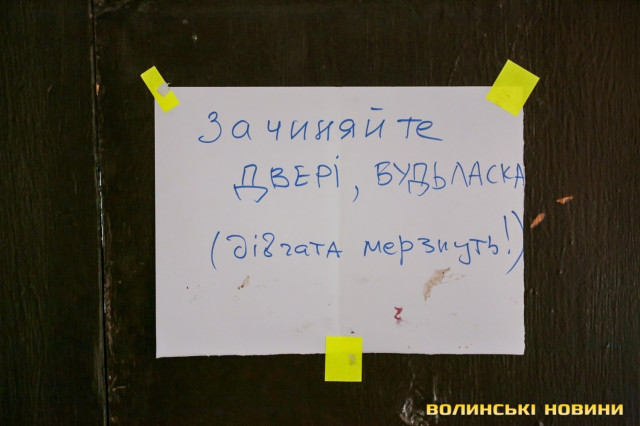 Зачиняйте
ДВЕРІ, БУДЬЛАСКА
(дівчата мерзнуть!)
ВОЛИНСЬКІ НОВИНИ